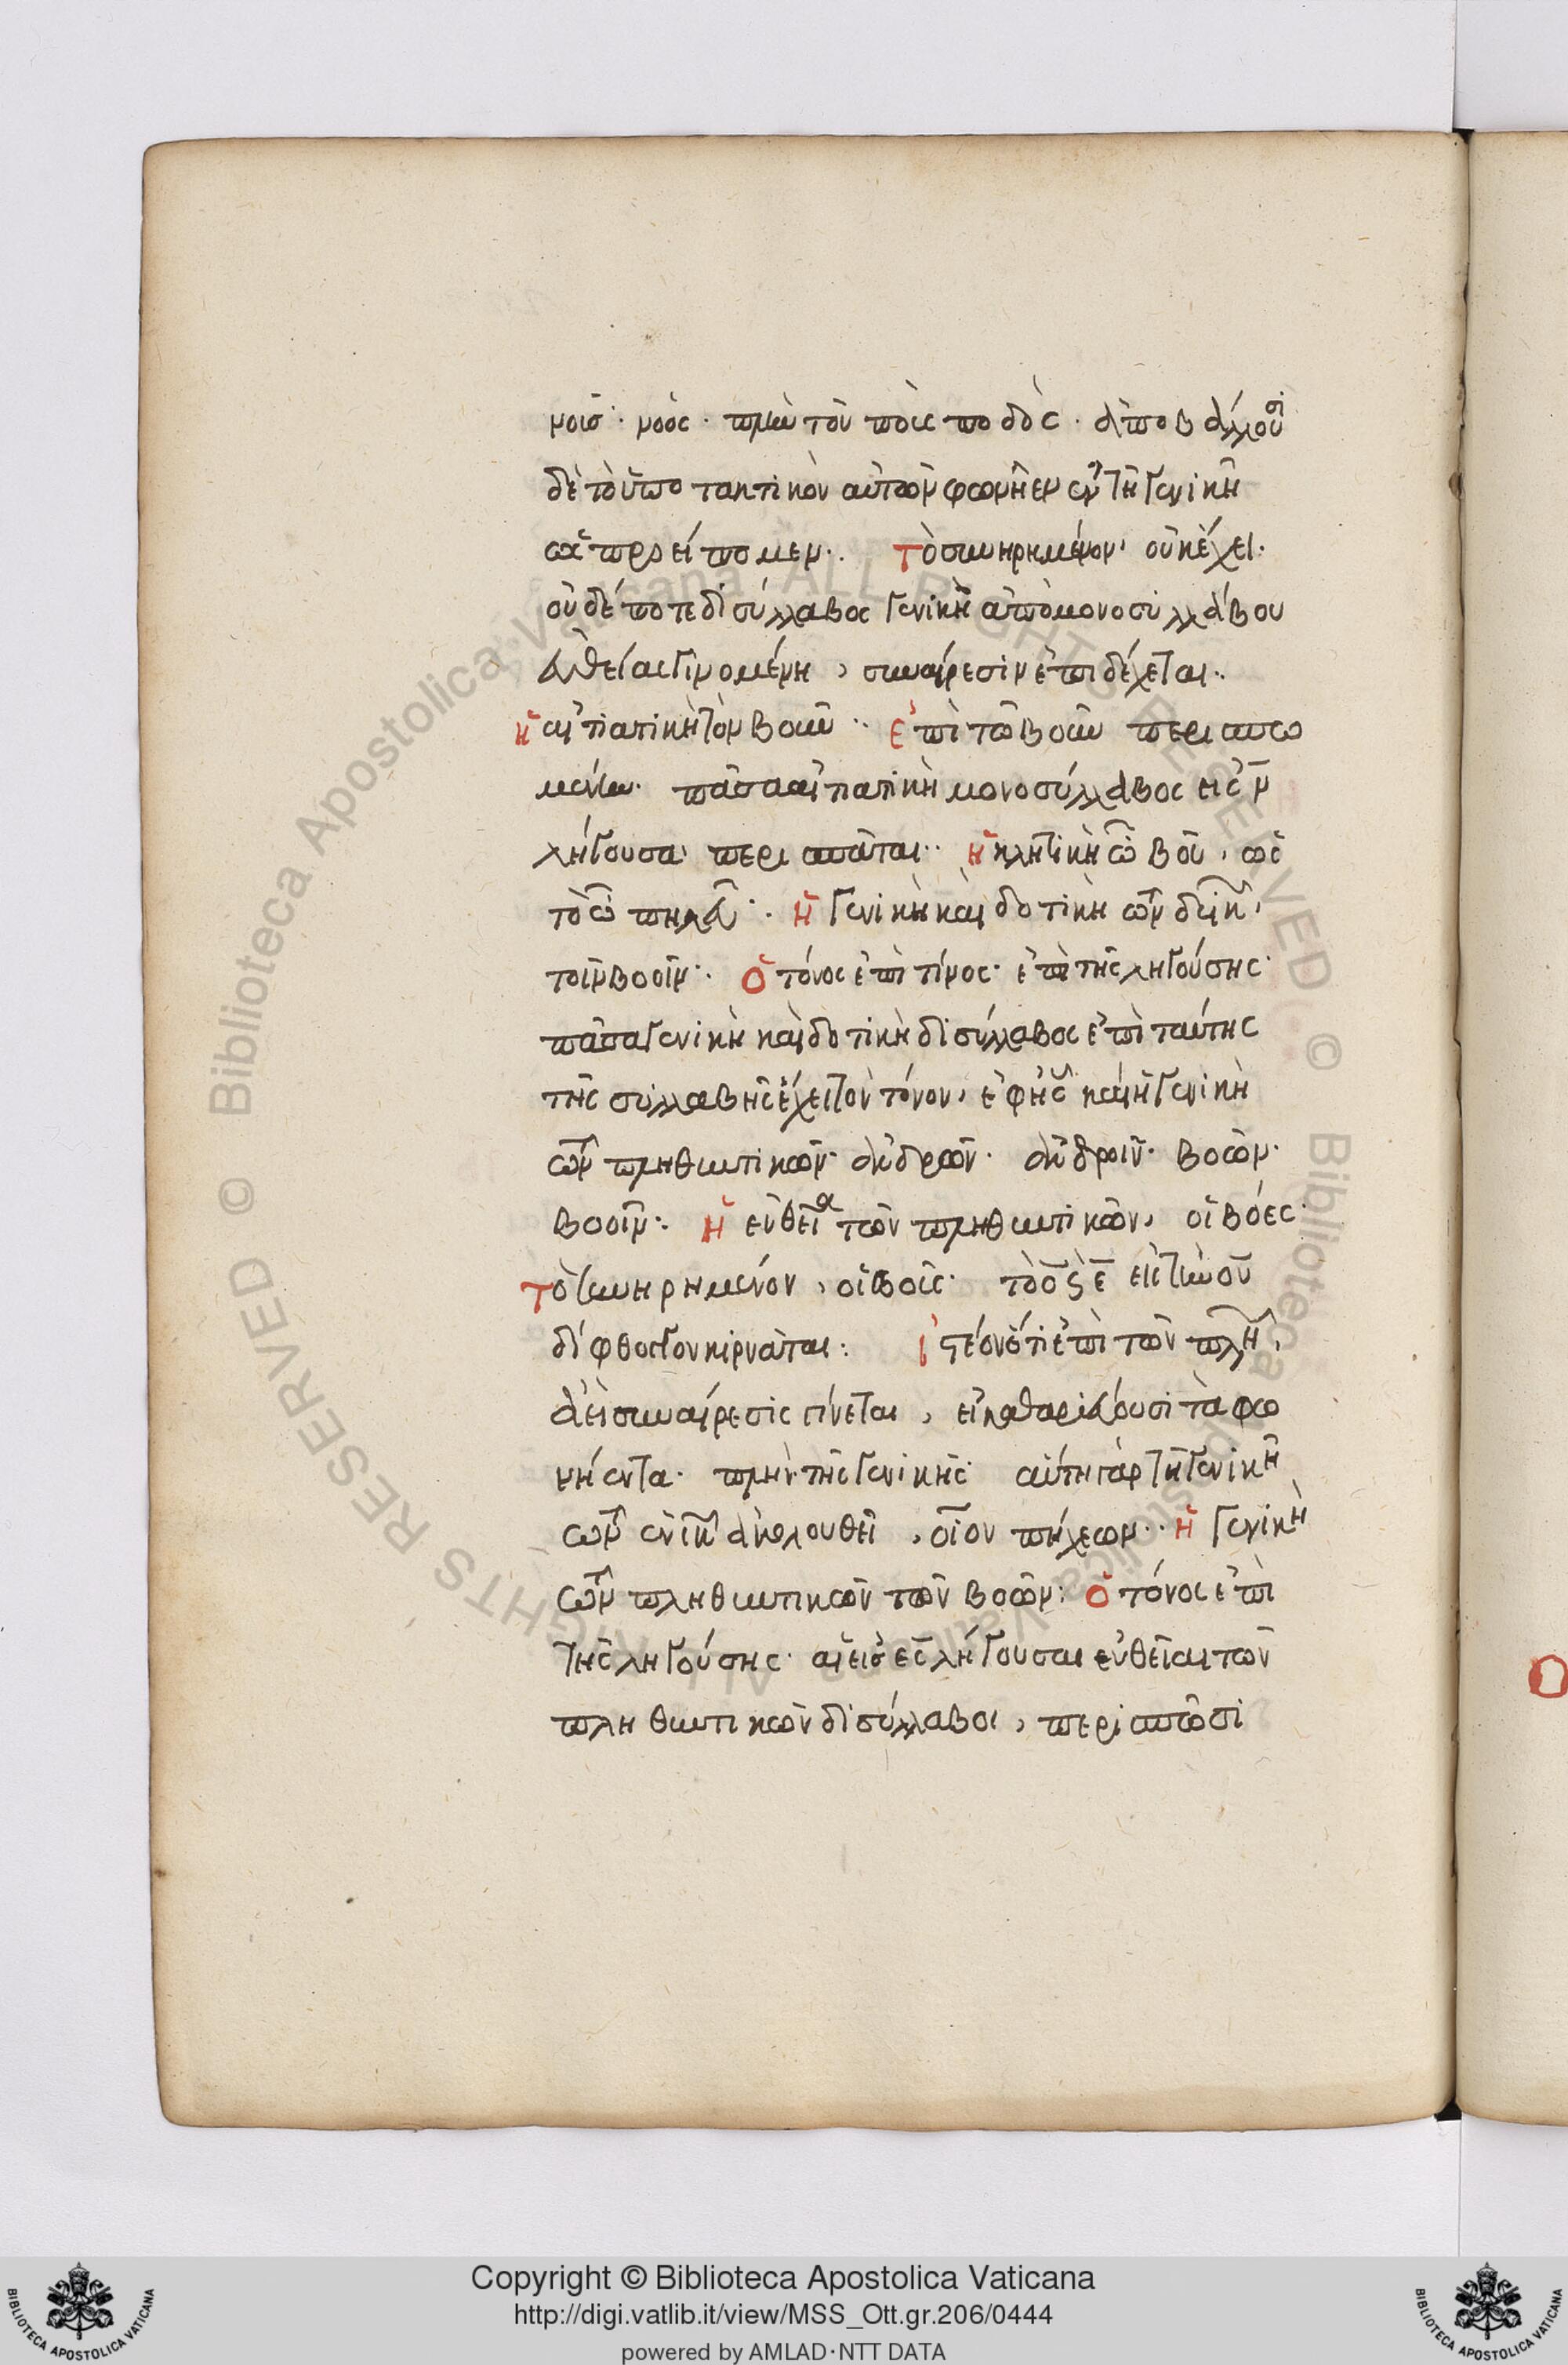 νοῦς· νοός· πλὴν τοῦ ποὺς ποδός· ἀποβάλλουσι
δὲ τὸ ὑποτακτικὸν αὐτῶν φωνῆεν ἐν τῇ γενικῇ
ὡς προείπομεν·. τὸ συνηρημένον οὐκ ἔχει·
οὐδέποτε δισύλλαβος γενικὴ ἀπὸ μονοσυλλάβου
εὐθείας γινομένη, συναίρεσιν ἐπιδέχεται·.
ἡ αἰτιατικὴ τὸν βοῦν·. ἐπὶ τοῦ βοῦν περισπω
μένην· πᾶσα αἰτιατικὴ μονοσύλλαβος εἰς ν
λήγουσα περισπᾶται·. ἡ κλητικὴ ὦ βοῦ, ὡς
τὸ ὦ πηλεῦ·. ἡ γενικὴ καὶ δοτικὴ τῶν δυϊκῶν,
τοῖν βοοῖν·. ὁ τόνος ἐπὶ τίνος· ἐπὶ τῆς ληγούσης·
πᾶσα γενικὴ καὶ δοτικὴ δισύλλαβος ἐπὶ ταύτης
τῆς συλλαβῆς ἔχει τὸν τόνον, ἐφ' ἧς καὶ ἡ γενικὴ
τῶν πληθυντικῶν· ἀνδρῶν· ἀνδροῖν· βοῶν·
βοοῖν·. ἡ εὐθεῖα τῶν πληθυντικῶν, οἱ βόες·
τὸ συνηρημένον, οἱ βοῦς· τὸ ο καὶ ε εἰς τὴν ου
δίφθογγον κιρνᾶται: ἰστέον ὅτι ἐπὶ τῶν πλη,
ἀεὶ συναίρεσις γίνεται, εἰ καθαρεύουσι τὰ φω
νήεντα· πλὴν τῆς γενικῆς· αὕτη γὰρ τῇ γενικῇ
τῶν ἑνικῶν ἀκολουθεῖ, οἷον πήχεων·. ἡ γενικὴ
τῶν πληθυντικῶν τῶν βοῶν: ὁ τόνος ἐπὶ
τῆς ληγούσης· αἱ εἰς ες λήγουσαι εὐθεῖαι τῶν
πληθυντικῶν δισύλλαβοι, περισπῶσι
Biblioteca Apostolica Vaticana ALL RIGHTS RESERVED ©
Copyright © Biblioteca Apostolica Vaticana
http://digi.vatlib.it/view/MSS_Ott.gr.206/0444
powered by AMLAD·NTT DATA
BIBLIOTECA APOSTOLICA VATICANA
BIBLIOTECA APOSTOLICA VATICANA